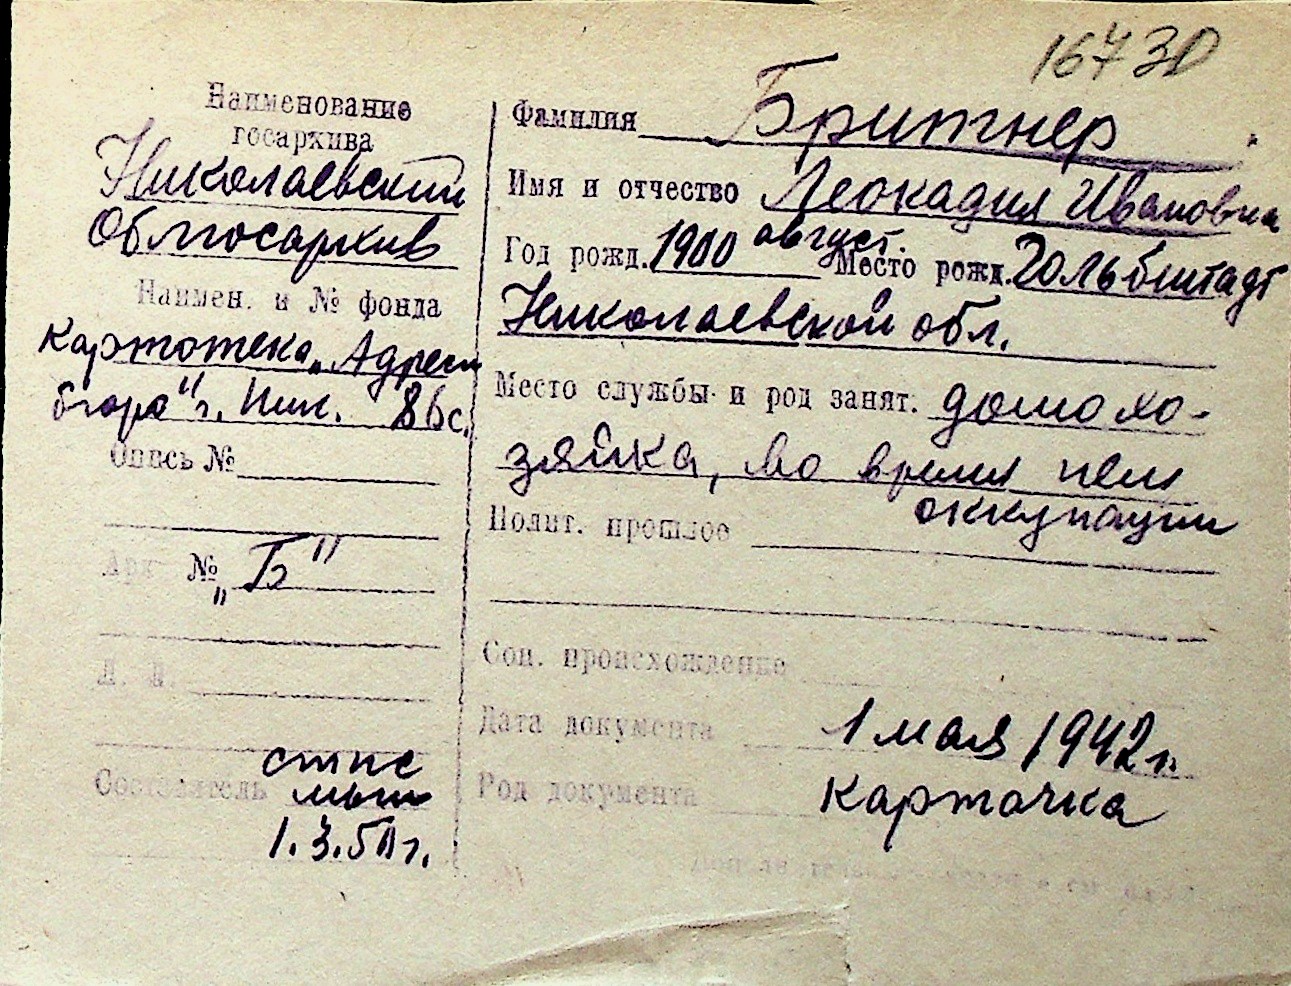 16730
Наименование
госархива
Николаевский
Облгосархив
Наимен. и № фонда
Картотека „Адресн
бюро" г. Ник. 86с.
Опись №
Арх № „Б"
Л. Л.
Составитель
1.3.50г.
Фамилия Бритнер
Имя и отчество Леокадия Ивановна
Год рожд. 1900 август. Место рожд. Гольбштадт
Николаевской обл.
Место службы и род занят. домохо-
зяйка, во время нем
оккупации
Полит. прошлое
Соц. происхождение
Дата документа 1 мая 1942 г.
Род документа карточка